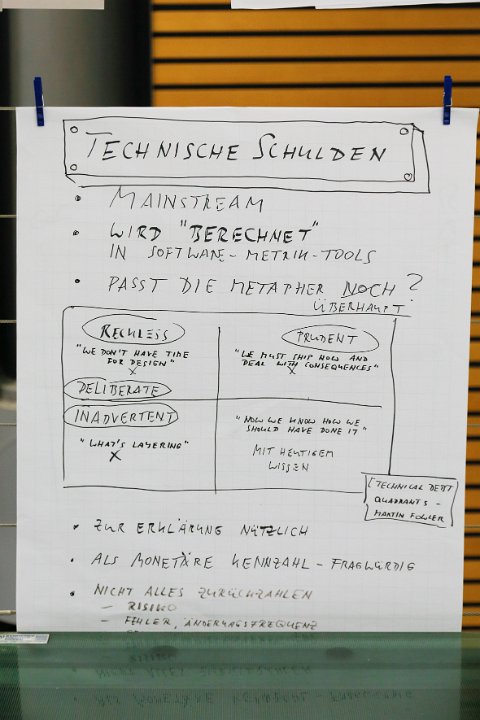 TECHNISCHE SCHULDEN
• MAINSTREAM
• WIRD "BERECHNET"
IN SOFTWARE-METRIK-TOOLS
• PASST DIE METAPHER NOCH?
ÜBERHAUPT
RECKLESS
PRUDENT
"WE DON'T HAVE TIME
FOR DESIGN"
X
"WE MUST SHIP NOW AND
DEAL WITH CONSEQUENCES"
X
DELIBERATE
INADVERTENT
"WHAT'S LAYERING"
X
"NOW WE KNOW HOW WE
SHOULD HAVE DONE IT"
MIT HEUTIGEM
WISSEN
[TECHNICAL DEBT
QUADRANTS -
MARTIN FOWLER
• ZUR ERKLÄRUNG NÜTZLICH
• ALS MONETÄRE KENNZAHL - FRAGWÜRDIG
• NICHT ALLES ZURÜCKZAHLEN
- RISIKO
- FEHLER, ÄNDERUNGSFREQUENZ